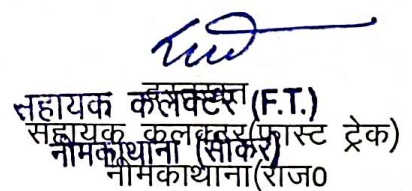 हस्ताक्षर
सहायक कलक्टर (F.T.)
सहायक कलक्टर(फास्ट ट्रेक)
नीमकाथाना (सीकर)
नीमकाथाना(राज0